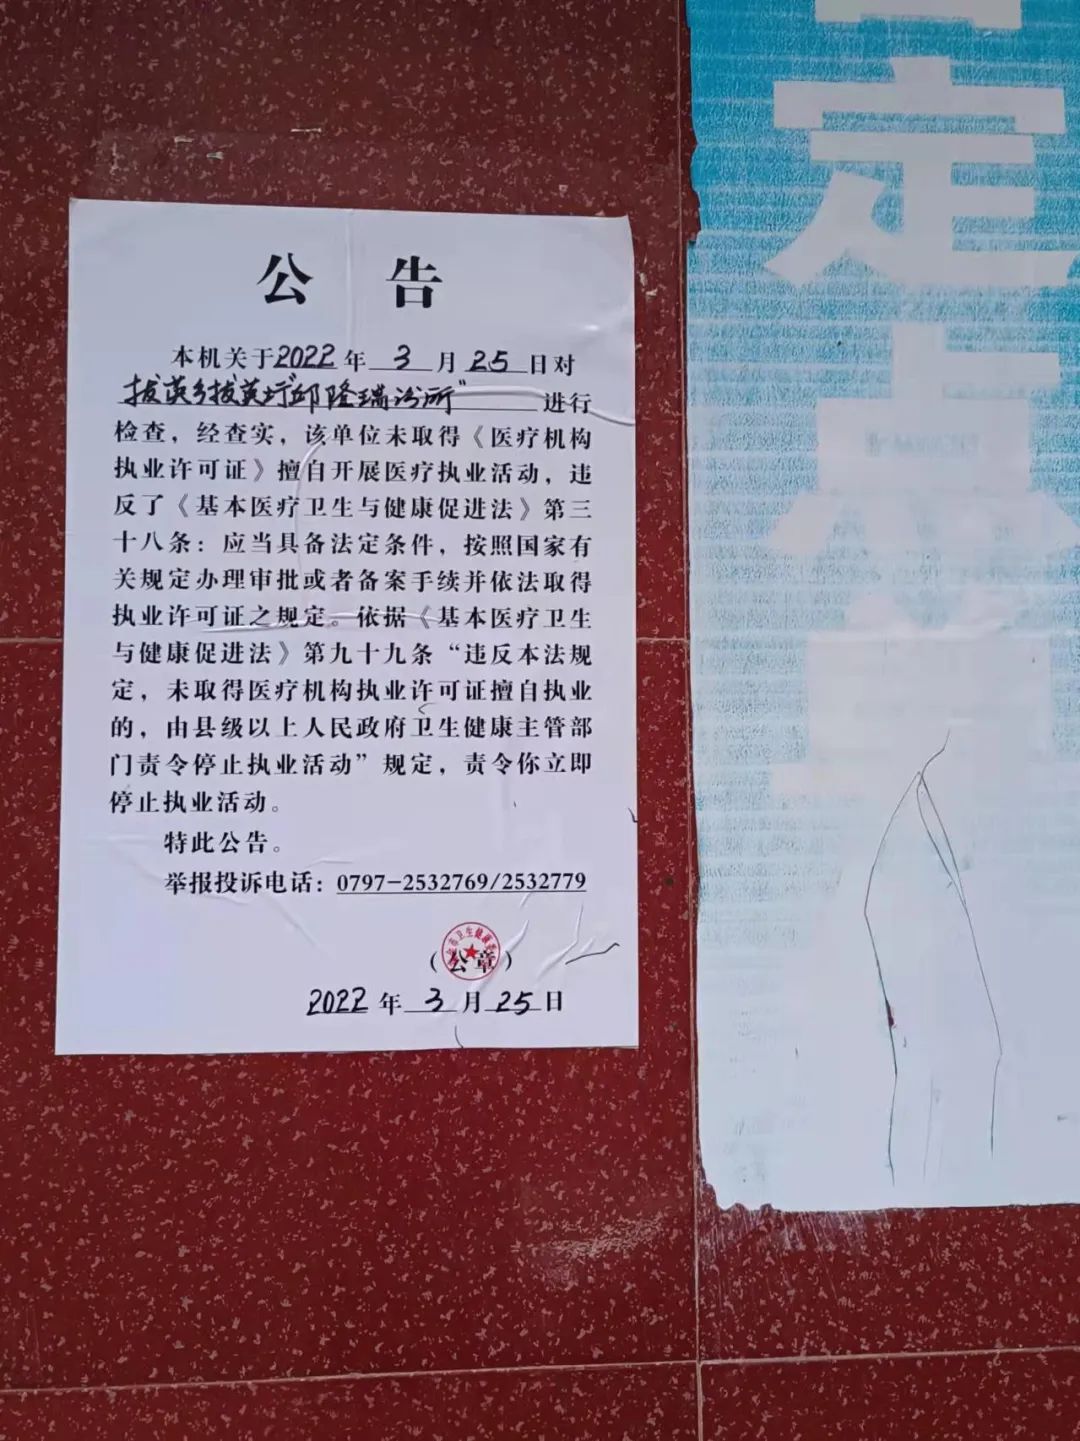 公告
本机关于2022年3月25日对
拔英乡拔英圩"邱隆瑞诊所"进行
检查，经查实，该单位未取得《医疗机构
执业许可证》擅自开展医疗执业活动，违
反了《基本医疗卫生与健康促进法》第三
十八条：应当具备法定条件，按照国家有
关规定办理审批或者备案手续并依法取得
执业许可证之规定。依据《基本医疗卫生
与健康促进法》第九十九条“违反本法规
定，未取得医疗机构执业许可证擅自执业
的，由县级以上人民政府卫生健康主管部
门责令停止执业活动”规定，责令你立即
停止执业活动。
特此公告。
举报投诉电话：0797-2532769/2532779
（公章）
2022年3月25日
定